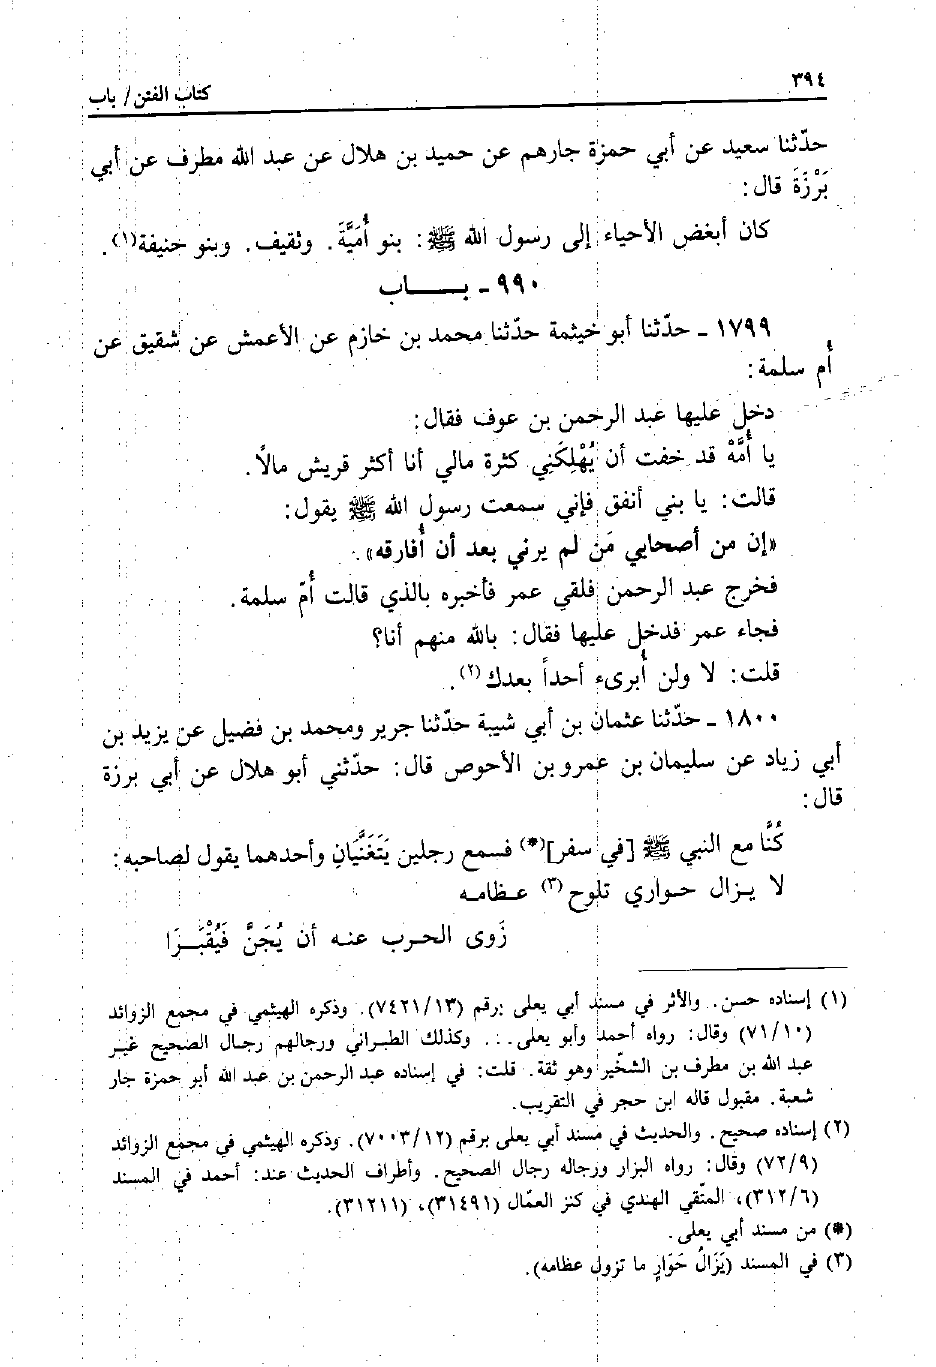 ٣٩٤
كتاب الفتن / باب
حدّثنا سعيد عن أبي حمزة جارهم عن حميد بن هلال عن عبد الله مطرف عن أبي
بَرْزَةَ قال:
كان أبغض الأحياء إلى رسول الله ﷺ: بنو أُمَيَّةَ. وثقيف. وبنو حنيفة(١).
٩٩٠ - بـــــاب
١٧٩٩ - حدّثنا أبو خيثمة حدّثنا محمد بن خازم عن الأعمش عن شقيق عن
أُم سلمة:
دخل عليها عبد الرحمن بن عوف فقال:
يا أُمَّهْ قد خفت أن يُهْلِكَنِي كثرة مالي أنا أكثر قريش مالاً.
قالت: يا بني أنفق فإني سمعت رسول الله ﷺ يقول:
«إن من أصحابي مَن لم يرني بعد أن أُفارقه».
فخرج عبد الرحمن فلقي عمر فأخبره بالذي قالت أُمّ سلمة.
فجاء عمر فدخل عليها فقال: بالله منهم أنا؟
قلت: لا ولن أُبرىء أحداً بعدك(٢).
١٨٠٠ - حدّثنا عثمان بن أبي شيبة حدّثنا جرير ومحمد بن فضيل عن يزيد بن
أبي زياد عن سليمان بن عمرو بن الأحوص قال: حدّثني أبو هلال عن أبي برزة
قال:
كُنَّا مع النبي ﷺ [في سفر](*) فسمع رجلين يَتَغَنَّيَانِ وأحدهما يقول لصاحبه:
لا يـزال حـواري تلوح(٣) عـظامـه
زَوى الحـرب عنـه أن يُجَنَّ فَيُقْبَـرَا
(١) إسناده حسن. والأثر في مسند أبي يعلى برقم (٧٤٢١/١٣). وذكره الهيثمي في مجمع الزوائد
(٧١/١٠) وقال: رواه أحمد وأبو يعلى... وكذلك الطبراني ورجالهم رجال الصحيح غير
عبد الله بن مطرف بن الشخّير وهو ثقة. قلت: في إسناده عبد الرحمن بن عبد الله أبو حمزة جار
شعبة. مقبول قاله ابن حجر في التقريب.
(٢) إسناده صحيح. والحديث في مسند أبي يعلى برقم (٧٠٠٣/١٢). وذكره الهيثمي في مجمع الزوائد
(٧٢/٩) وقال: رواه البزار ورجاله رجال الصحيح. وأطراف الحديث عند: أحمد في المسند
(٣١٢/٦)، المتّقي الهندي في كنز العمّال (٣١٤٩١)، (٣١٢١١).
(*) من مسند أبي يعلى.
(٣) في المسند (يَزَالُ حَوَارٍ ما تزول عظامه).